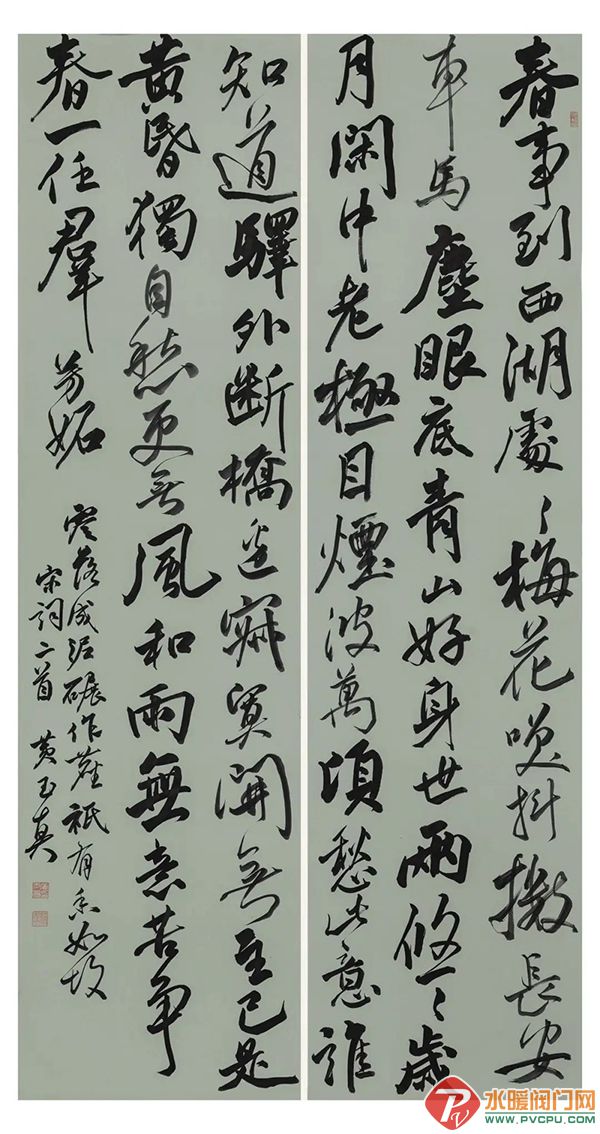 春事到西湖處〻梅花咲抖擻長安
車馬塵眼底青山好身世兩悠〻歲
月閑中老極目煙波萬頃愁此意誰
知道驛外斷橋邊寂寞開無主已是
黃昏獨自愁更著風和雨無意苦爭
春一任羣芳妬
零落成泥碾作塵祇有香如故
宋詞二首 黃玉真
PV
水暖阀门网
WWW.PVCPU.COM